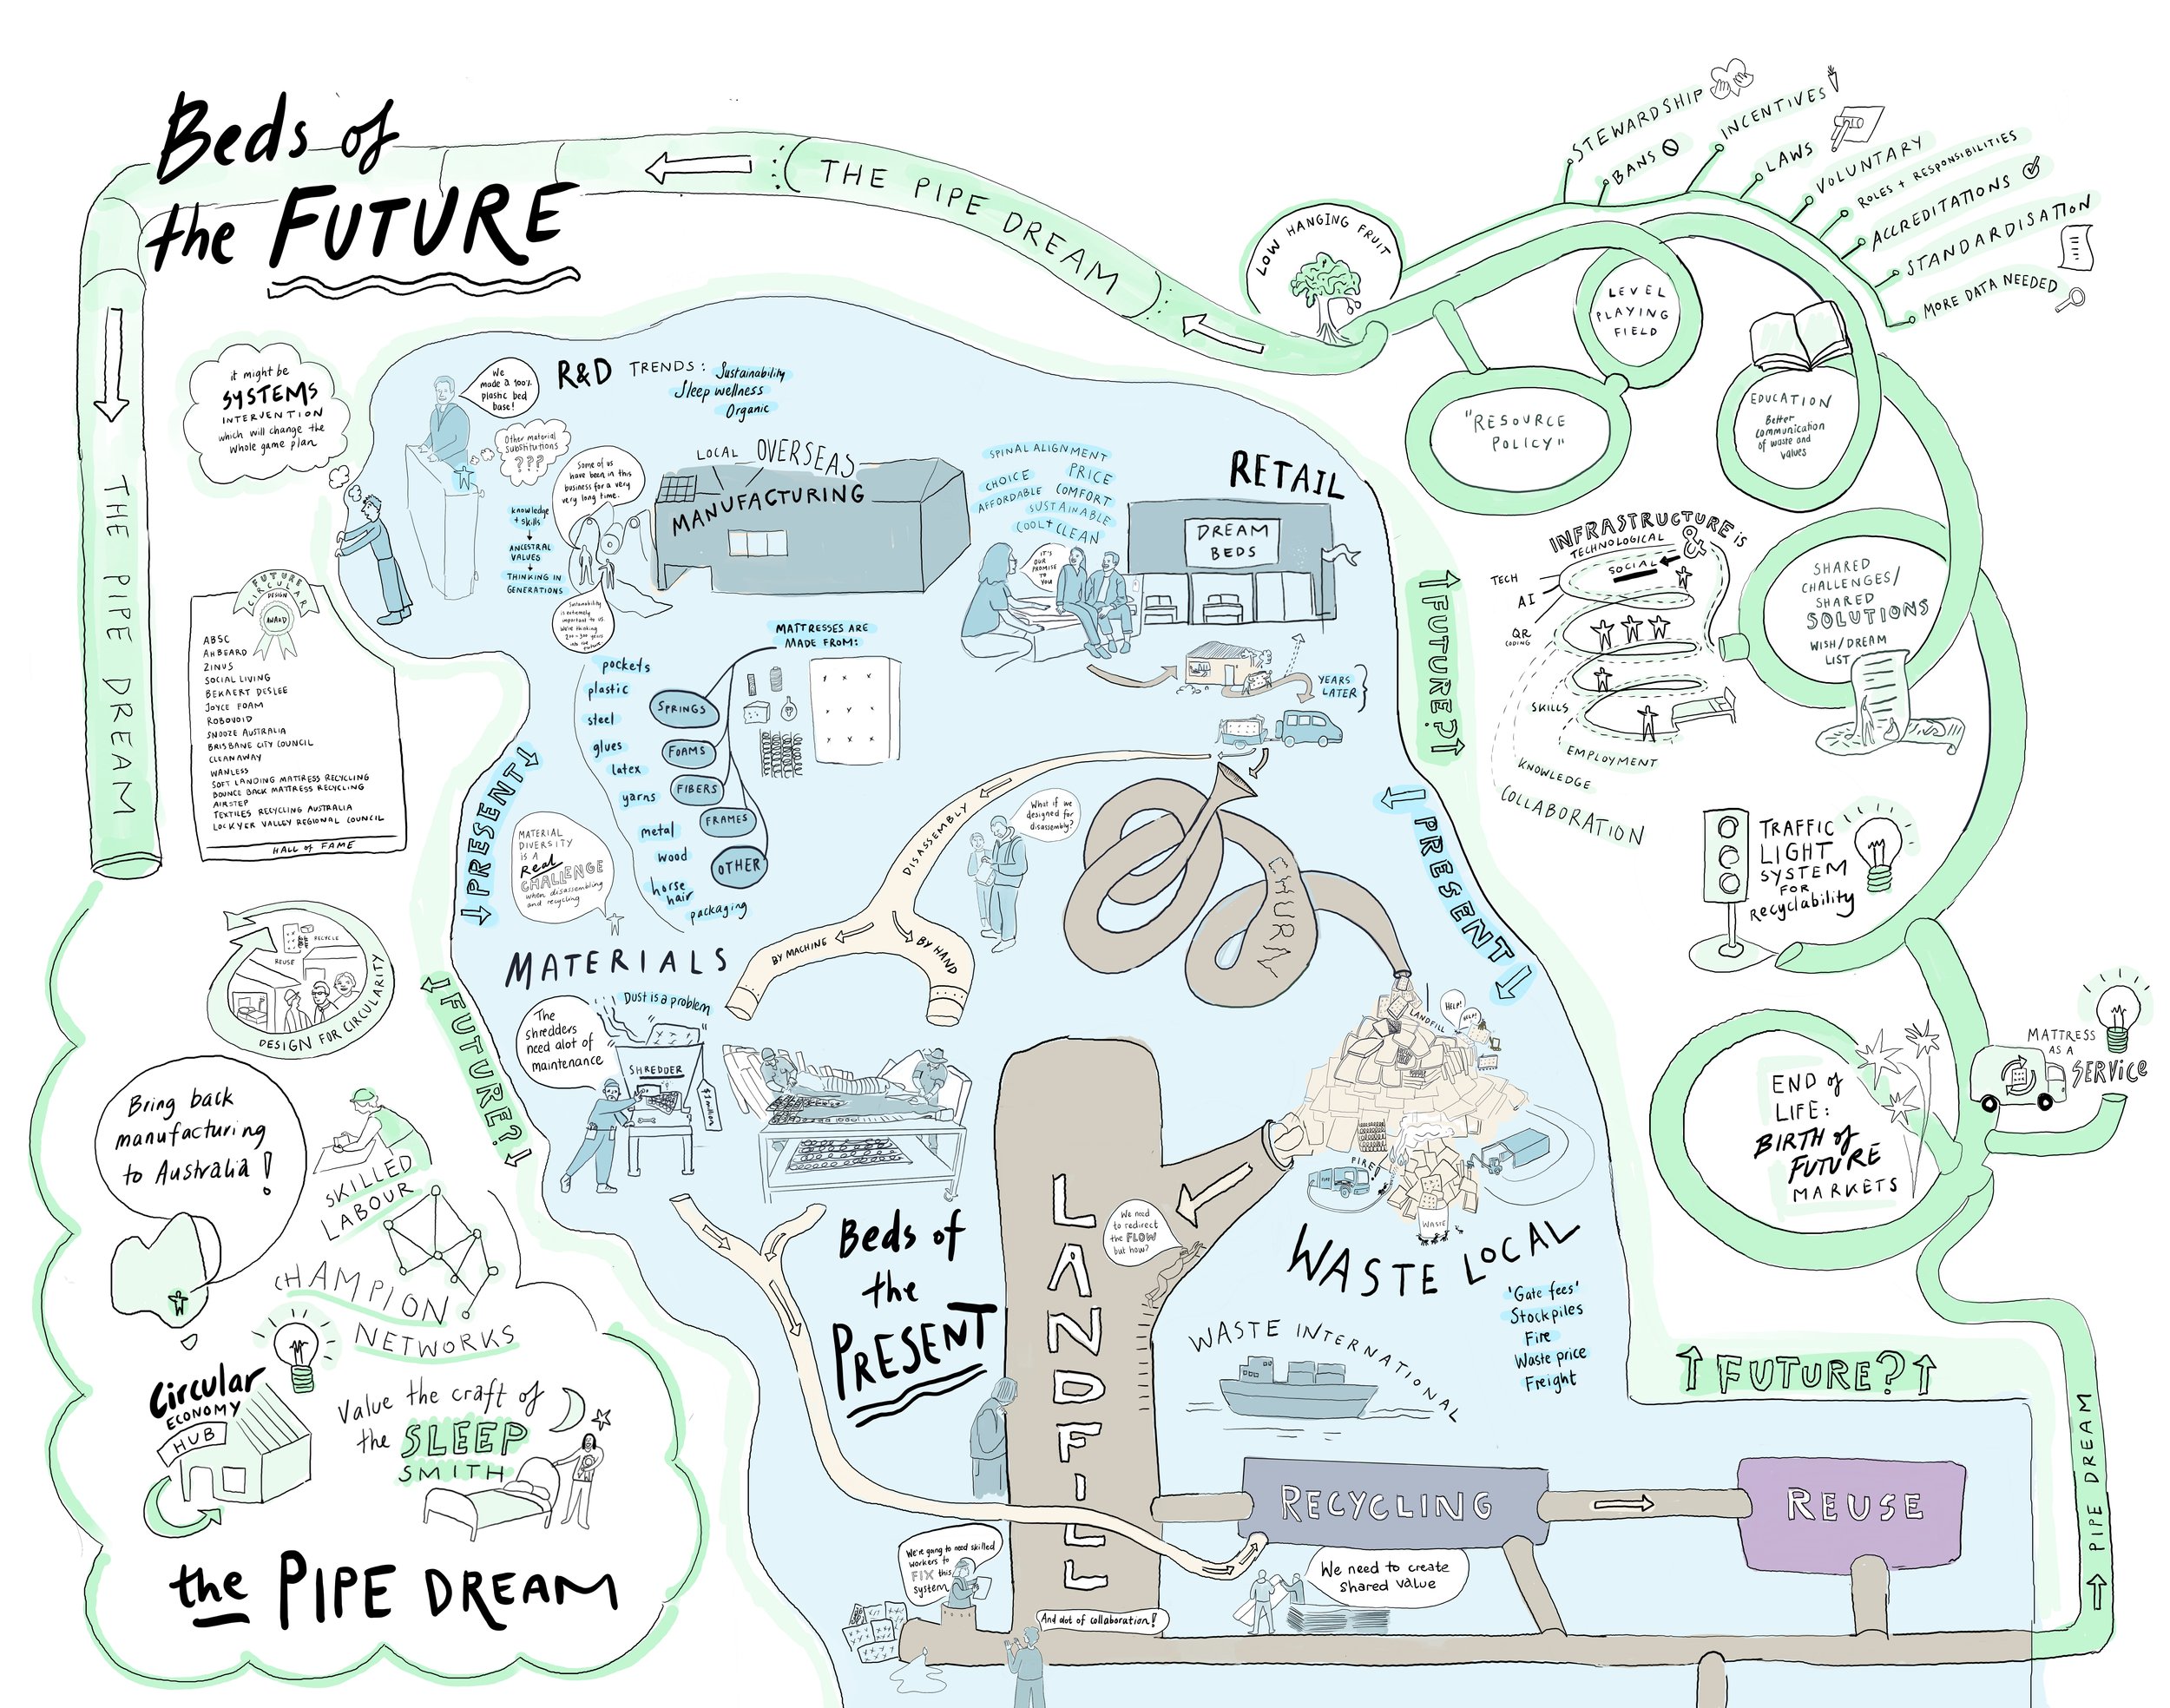 Beds of
the FUTURE
THE PIPE DREAM
THE PIPE DREAM
LOW HANGING FRUIT
STEWARDSHIP
BANS
INCENTIVES
LAWS
VOLUNTARY
ROLES + RESPONSIBILITIES
ACCREDITATIONS
STANDARDISATION
MORE DATA NEEDED
LEVEL
PLAYING
FIELD
"RESOURCE
POLICY"
EDUCATION
Better
communication
of waste and
values
INFRASTRUCTURE is
TECHNOLOGICAL &
SOCIAL
TECH
AI
QR
CODING
SKILLS
EMPLOYMENT
KNOWLEDGE
COLLABORATION
SHARED
CHALLENGES/
SHARED
SOLUTIONS
WISH/DREAM
LIST
TRAFFIC
LIGHT
SYSTEM
FOR
Recyclability
END of
LIFE:
BIRTH of
FUTURE
MARKETS
MATTRESS
AS A
SERVICE
FUTURE?
PIPE DREAM
it might be
SYSTEMS
INTERVENTION
which will change the
whole game plan
FUTURE
CIRCULAR
DESIGN
AWARD
ABSC
AH BEARD
ZINUS
SOCIAL LIVING
BEKAERT DESLEE
JOYCE FOAM
ROBOVOID
SNOOZE AUSTRALIA
BRISBANE CITY COUNCIL
CLEANAWAY
WANLESS
SOFT LANDING MATTRESS RECYCLING
BOUNCE BACK MATTRESS RECYCLING
AIRSTEP
TEXTILES RECYCLING AUSTRALIA
LOCKYER VALLEY REGIONAL COUNCIL
HALL of FAME
We
made a 100%
plastic bed
base!
R&D TRENDS: Sustainability
Sleep wellness
Organic
Other material
substitutions
???
Some of us
have been in this
business for a very
very long time.
knowledge
+ skills
ANCESTRAL
VALUES
THINKING IN
GENERATIONS
Sustainability
is extremely
important to us.
We're thinking
200-300 years
into the
future
LOCAL OVERSEAS
MANUFACTURING
SPINAL ALIGNMENT
CHOICE PRICE
AFFORDABLE COMFORT
SUSTAINABLE
COOL + CLEAN
RETAIL
DREAM
BEDS
IT'S
OUR
PROMISE
TO
YOU
YEARS
LATER
FUTURE?
PRESENT
PRESENT
FUTURE?
MATTRESSES ARE
MADE FROM:
pockets
plastic
steel
glues
latex
yarns
metal
wood
horse
hair
packaging
SPRINGS
FOAMS
FIBERS
FRAMES
OTHER
MATERIAL
DIVERSITY
IS A
Real
CHALLENGE
when disassembling
and recycling
MATERIALS
DISASSEMBLY
BY MACHINE
BY HAND
What if we
designed for
disassembly?
CHURN
The
shredders
need alot of
maintenance
Dust is a problem
SHREDDER
$1 million
LANDFILL
HELP!
HELP!
FIRE!
WASTE
Beds of
the
PRESENT
LANDFILL
We need
to redirect
the FLOW
but how?
WASTE LOCAL
'Gate fees'
Stockpiles
Fire
Waste price
Freight
WASTE INTERNATIONAL
RECYCLING
REUSE
We're going to need skilled
workers to
FIX this
system
And alot of collaboration!
We need to create
shared value
RECYCLE
REUSE
DESIGN FOR CIRCULARITY
Bring back
manufacturing
to Australia!
SKILLED
LABOUR
CHAMPION
NETWORKS
Circular
ECONOMY
HUB
Value the craft of
the SLEEP
SMITH
the PIPE DREAM